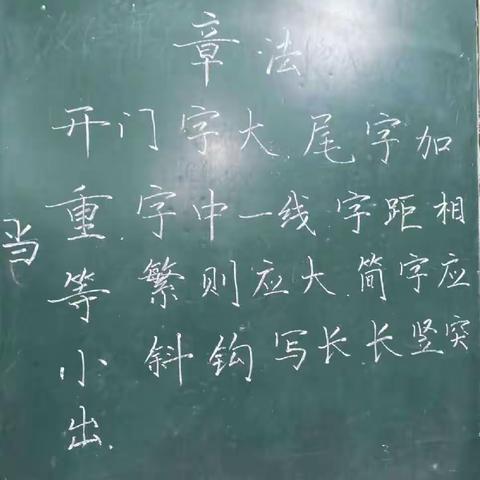 章法
开门字大.尾字加
重.字中一线.字距相
当
等繁则应大.简字应
小斜钩写长.长竖突
出.